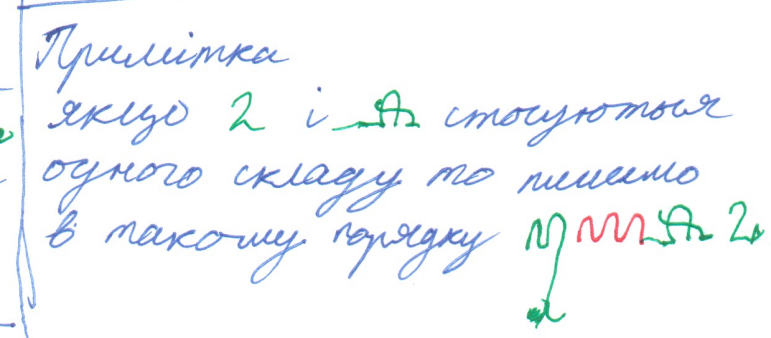 Примітка
якщо 2 і стосуються
одного складу то пишемо
в такому порядку 2